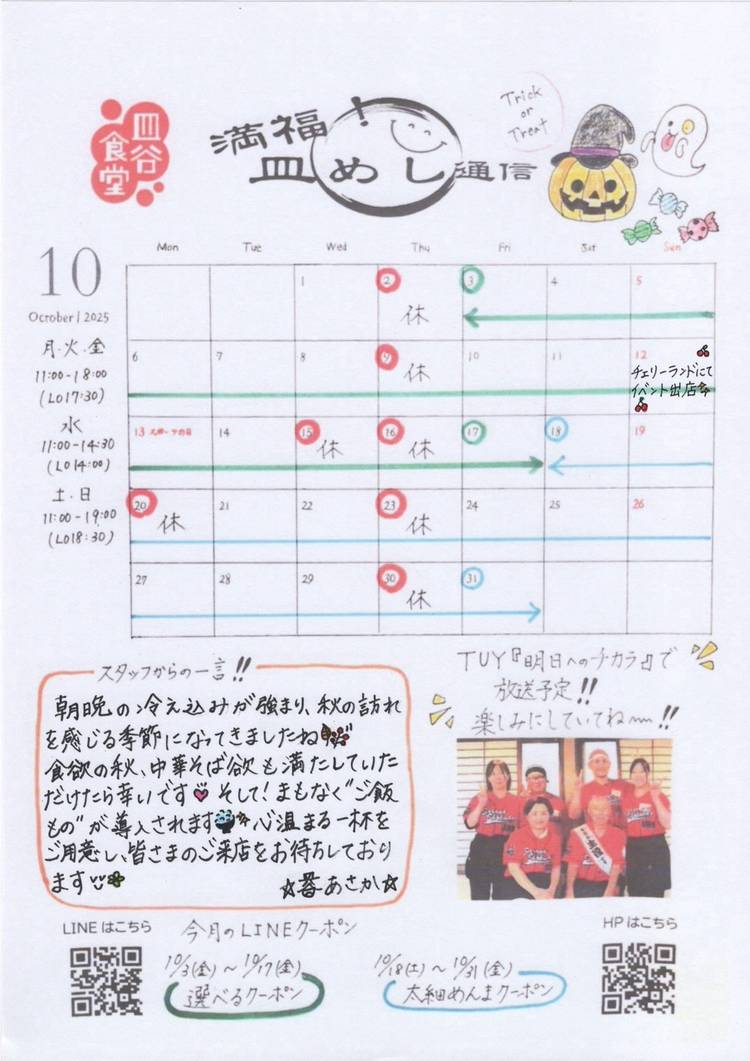 皿谷食堂
満福！
皿めし通信
Trick
or
Treat
Mon Tue Wed Thu Fri Sat Sun
10
October | 2025
1 2 3 4 5
休
月・火・金
11:00-18:00
(LO17:30)
6 7 8 9 10 11 12
休
チェリーランドにて
イベント出店
水
11:00-14:30
(LO14:00)
13 スポーツの日 14 15 16 17 18 19
休 休
土・日
11:00-19:00
(LO18:30)
20 21 22 23 24 25 26
休 休
27 28 29 30 31
休
スタッフからの一言!!
朝晩の冷え込みが強まり、秋の訪れ
を感じる季節になってきましたね
食欲の秋、中華そば欲も満たしていた
だけたら幸いです そして！まもなく"ご飯
もの"が導入されます 心温まる一杯を
ご用意し、皆さまのご来店をお待ちしており
ます
☆暮あさか☆
TUY『明日へのチカラ』で
放送予定!!
楽しみにしていてね〜!!
LINEはこちら
今月のLINEクーポン
10/3(金)～10/17(金)
選べるクーポン
10/18(土)～10/31(金)
太細めんまクーポン
HPはこちら